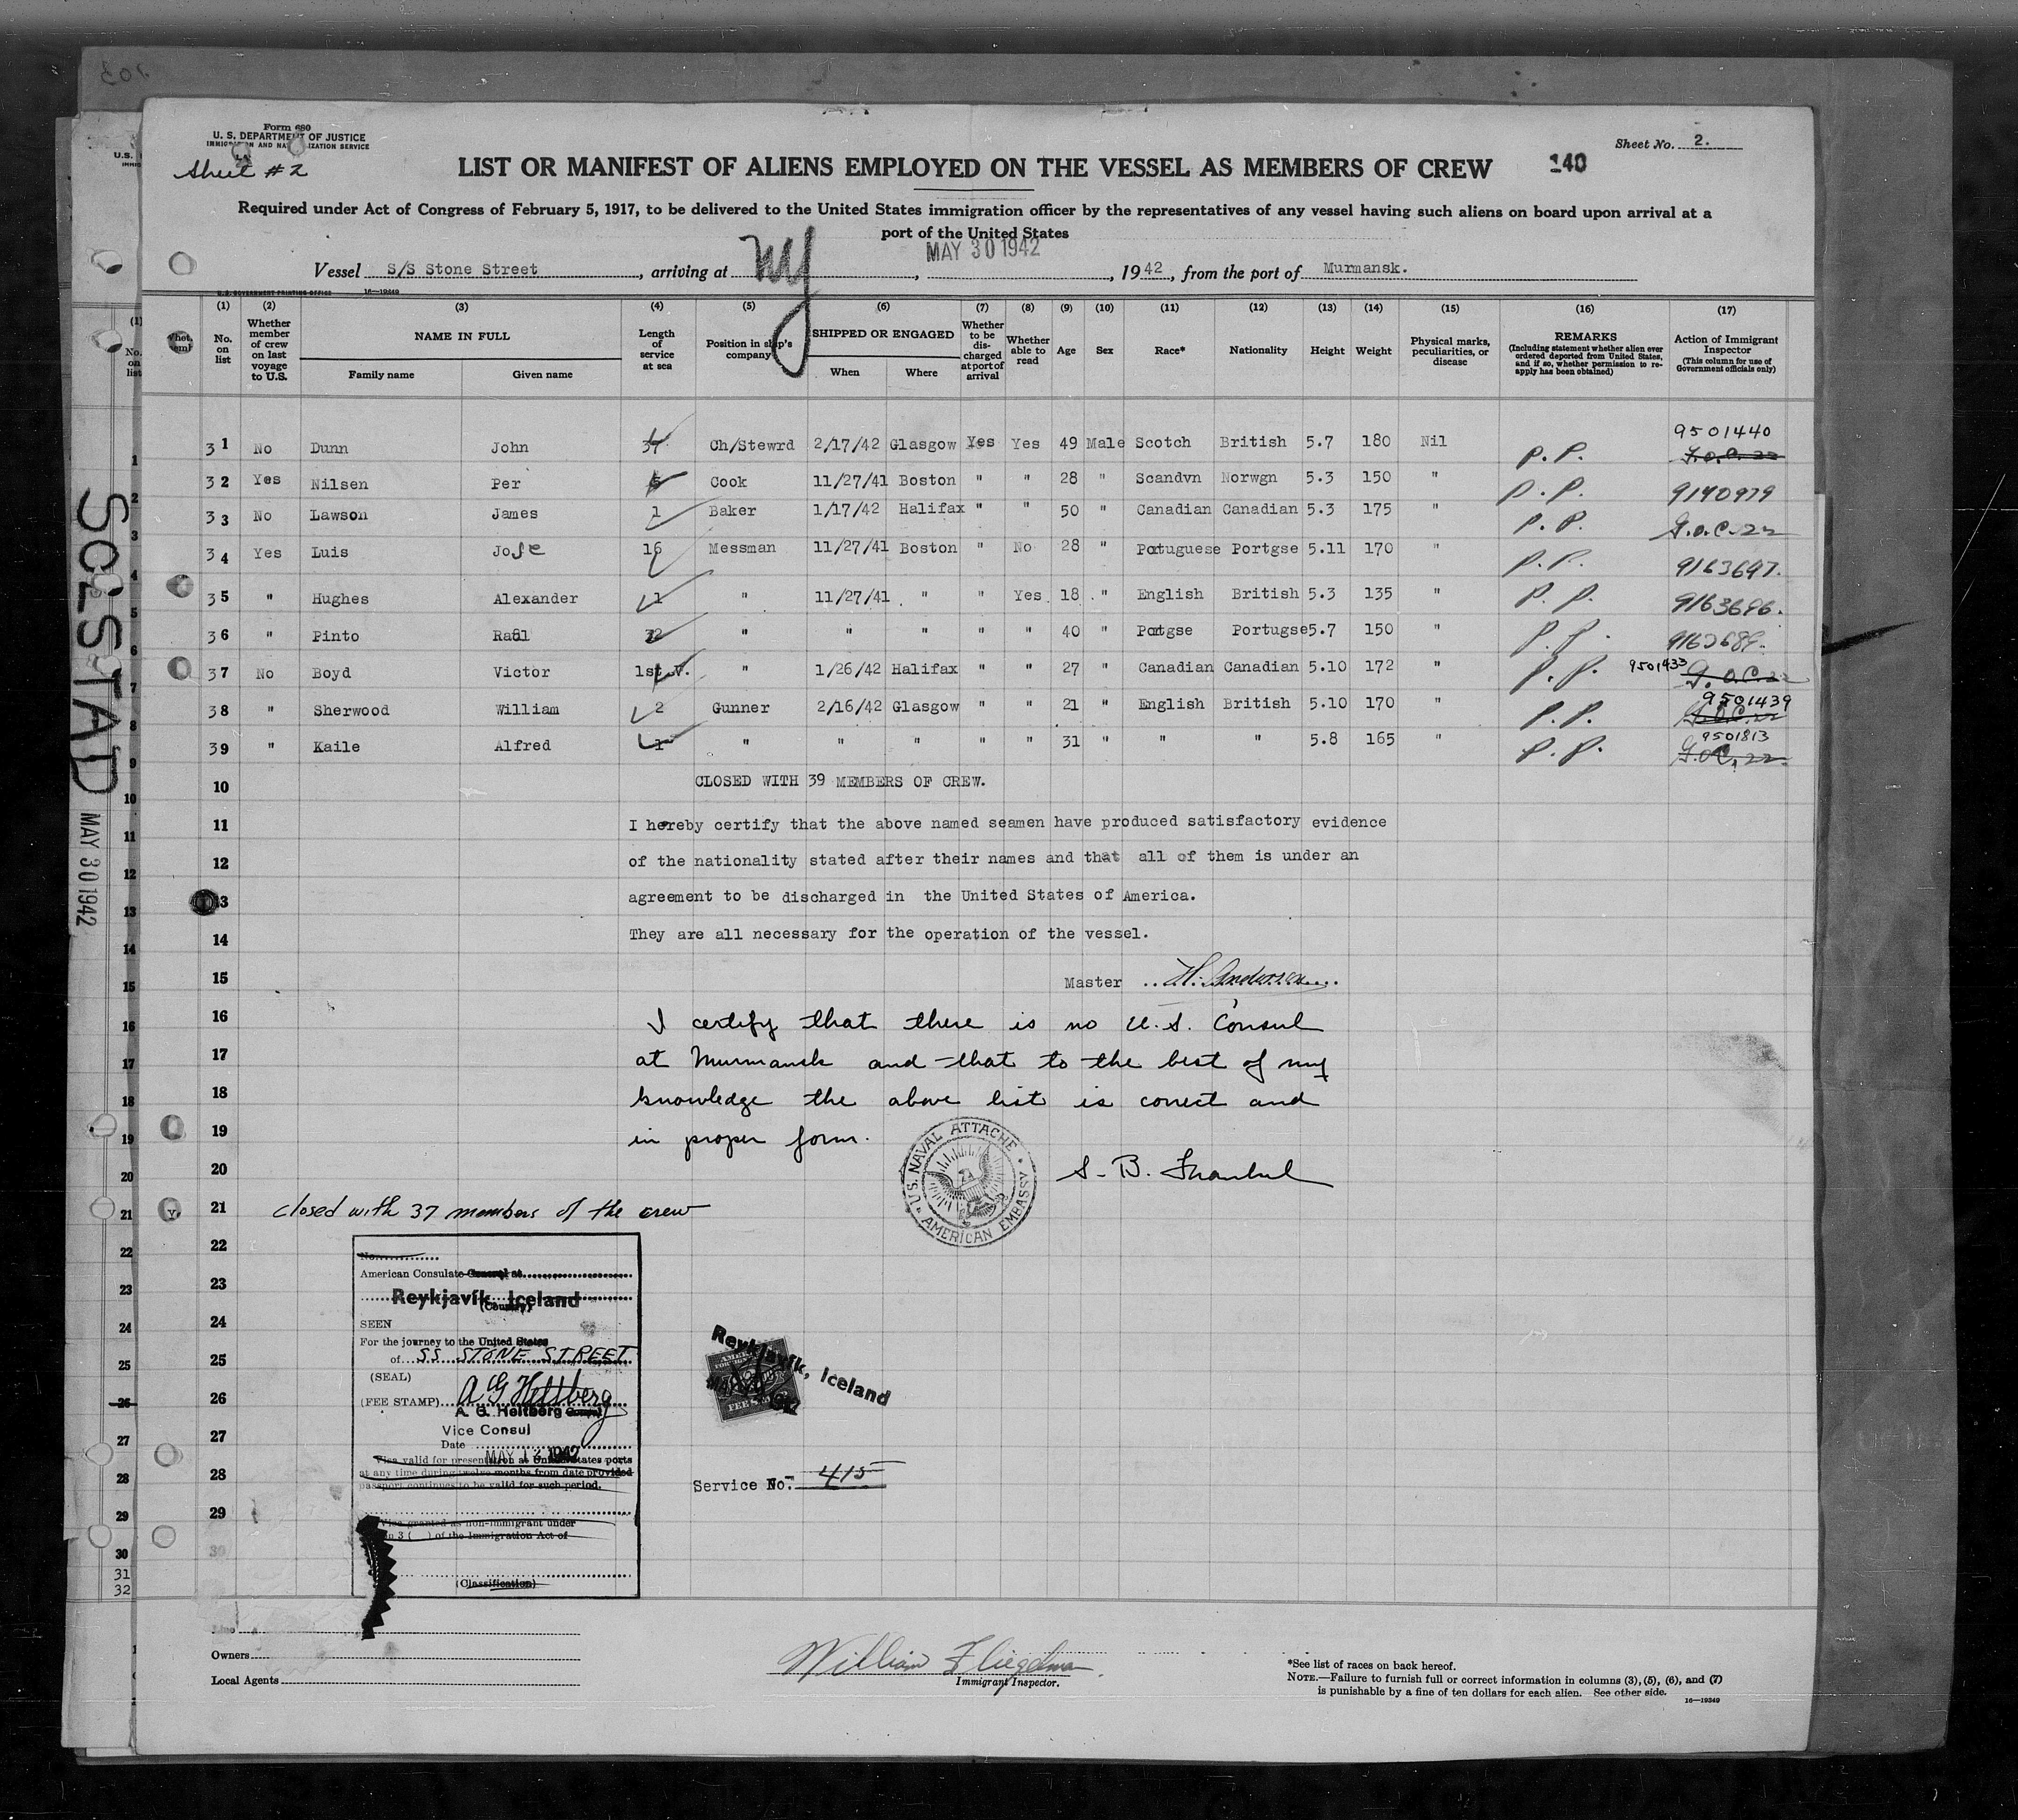 Form 680
U. S. DEPARTMENT OF JUSTICE
IMMIGRATION AND NATURALIZATION SERVICE
Sheet #2
Sheet No. 2.
LIST OR MANIFEST OF ALIENS EMPLOYED ON THE VESSEL AS MEMBERS OF CREW
140
Required under Act of Congress of February 5, 1917, to be delivered to the United States immigration officer by the representatives of any vessel having such aliens on board upon arrival at a
port of the United States
Vessel S/S Stone Street, arriving at NY, MAY 30 1942, 1942, from the port of Murmansk.
U. S. GOVERNMENT PRINTING OFFICE 16—19349
(1) (2) (3) (4) (5) (6) (7) (8) (9) (10) (11) (12) (13) (14) (15) (16) (17)
No. on list
Whether member of crew on last voyage to U.S.
NAME IN FULL
Family name
Given name
Length of service at sea
Position in ship's company
SHIPPED OR ENGAGED
When
Where
Whether to be discharged at port of arrival
Whether able to read
Age
Sex
Race*
Nationality
Height
Weight
Physical marks, peculiarities, or disease
REMARKS
(Including statement whether alien ever ordered deported from United States, and if so, whether permission to reapply has been obtained)
Action of Immigrant Inspector
(This column for use of Government officials only)
31 No Dunn John 37 Ch/Stewrd 2/17/42 Glasgow Yes Yes 49 Male Scotch British 5.7 180 Nil P.P. 9501440 G.O.C. 22
32 Yes Nilsen Per Cook 11/27/41 Boston " " 28 " Scandvn Norwgn 5.3 150 " P.P. 9140979
33 No Lawson James 1 Baker 1/17/42 Halifax " " 50 " Canadian Canadian 5.3 175 " P.P. G.O.C. 22
34 Yes Luis Jose 16 Messman 11/27/41 Boston " No 28 " Portuguese Portgse 5.11 170 " P.P. 9163697.
35 " Hughes Alexander 1 " 11/27/41 " " Yes 18 " English British 5.3 135 " P.P. 9163696.
36 " Pinto Raúl " " " " " 40 " Portgse Portugse 5.7 150 " P.P.
37 No Boyd Victor 1st.V. " 1/26/42 Halifax " " 27 " Canadian Canadian 5.10 172 " P.P. 9501433 G.O.C. 22
38 " Sherwood William 2 Gunner 2/16/42 Glasgow " " 21 " English British 5.10 170 " P.P. 9501439 G.O.C. 22
39 " Kaile Alfred 1 " " " " " 31 " " " 5.8 165 " P.P. 9501813 G.O.C. 22
10 CLOSED WITH 39 MEMBERS OF CREW.
11 I hereby certify that the above named seamen have produced satisfactory evidence
12 of the nationality stated after their names and that all of them is under an
13 agreement to be discharged in the United States of America.
14 They are all necessary for the operation of the vessel.
15 Master ..H. Andersen....
16 I certify that there is no U.S. Consul
17 at Murmansk and that to the best of my
18 knowledge the above list is correct and
19 in proper form.
U.S. NAVAL ATTACHE
AMERICAN EMBASSY
20 S. B.
21 closed with 37 members of the crew
22
23
24
25
26
27
28
29
30
No.
American Consulate General at
Reykjavík, Iceland
(Country)
SEEN
For the journey to the United States
of SS STONE STREET
(SEAL)
(FEE STAMP) A G Heltberg
A. G. Heltberg
Vice Consul
Date MAY 12 1942
Visa valid for presentation at United States ports
at any time during twelve months from date provided
passport continues to be valid for such period.
Visa granted as non-immigrant under
n 3 ( ) of the Immigration Act of
(Classification)
Reykjavík, Iceland
Service No. 415
Line
Owners
Local Agents
William Fliegelman
Immigrant Inspector.
*See list of races on back hereof.
NOTE.—Failure to furnish full or correct information in columns (3), (5), (6), and (7)
is punishable by a fine of ten dollars for each alien. See other side.
16—19349
SOLSTAD MAY 30 1942